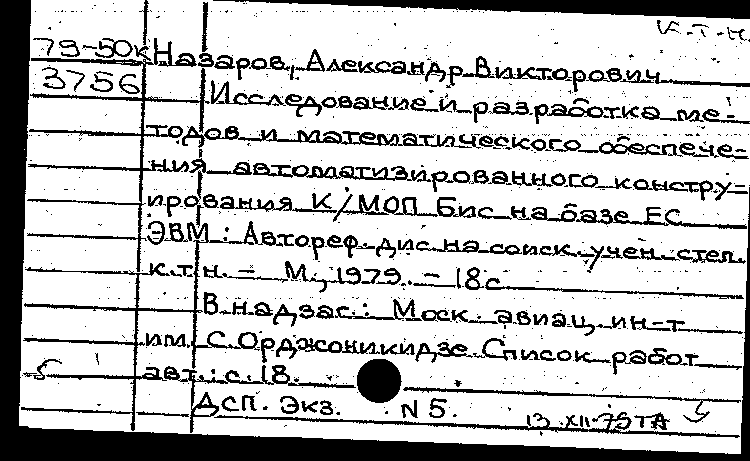 к.т.н.
79-50к Назаров, Александр Викторович
3756 Исследование и разработка ме-
тодов и математического обеспече-
ния автоматизированного констру-
ирования К/МОП Бис на базе ЕС
ЭВМ: Автореф. дис на соиск. учен. степ.
к.т.н. - М., 1979. - 18с
В надзаг.: Моск. авиац. ин-т
им. С. Орджоникидзе. Список работ
авт.: с. 18.
ДСП. Экз. N 5.
13.XII-79